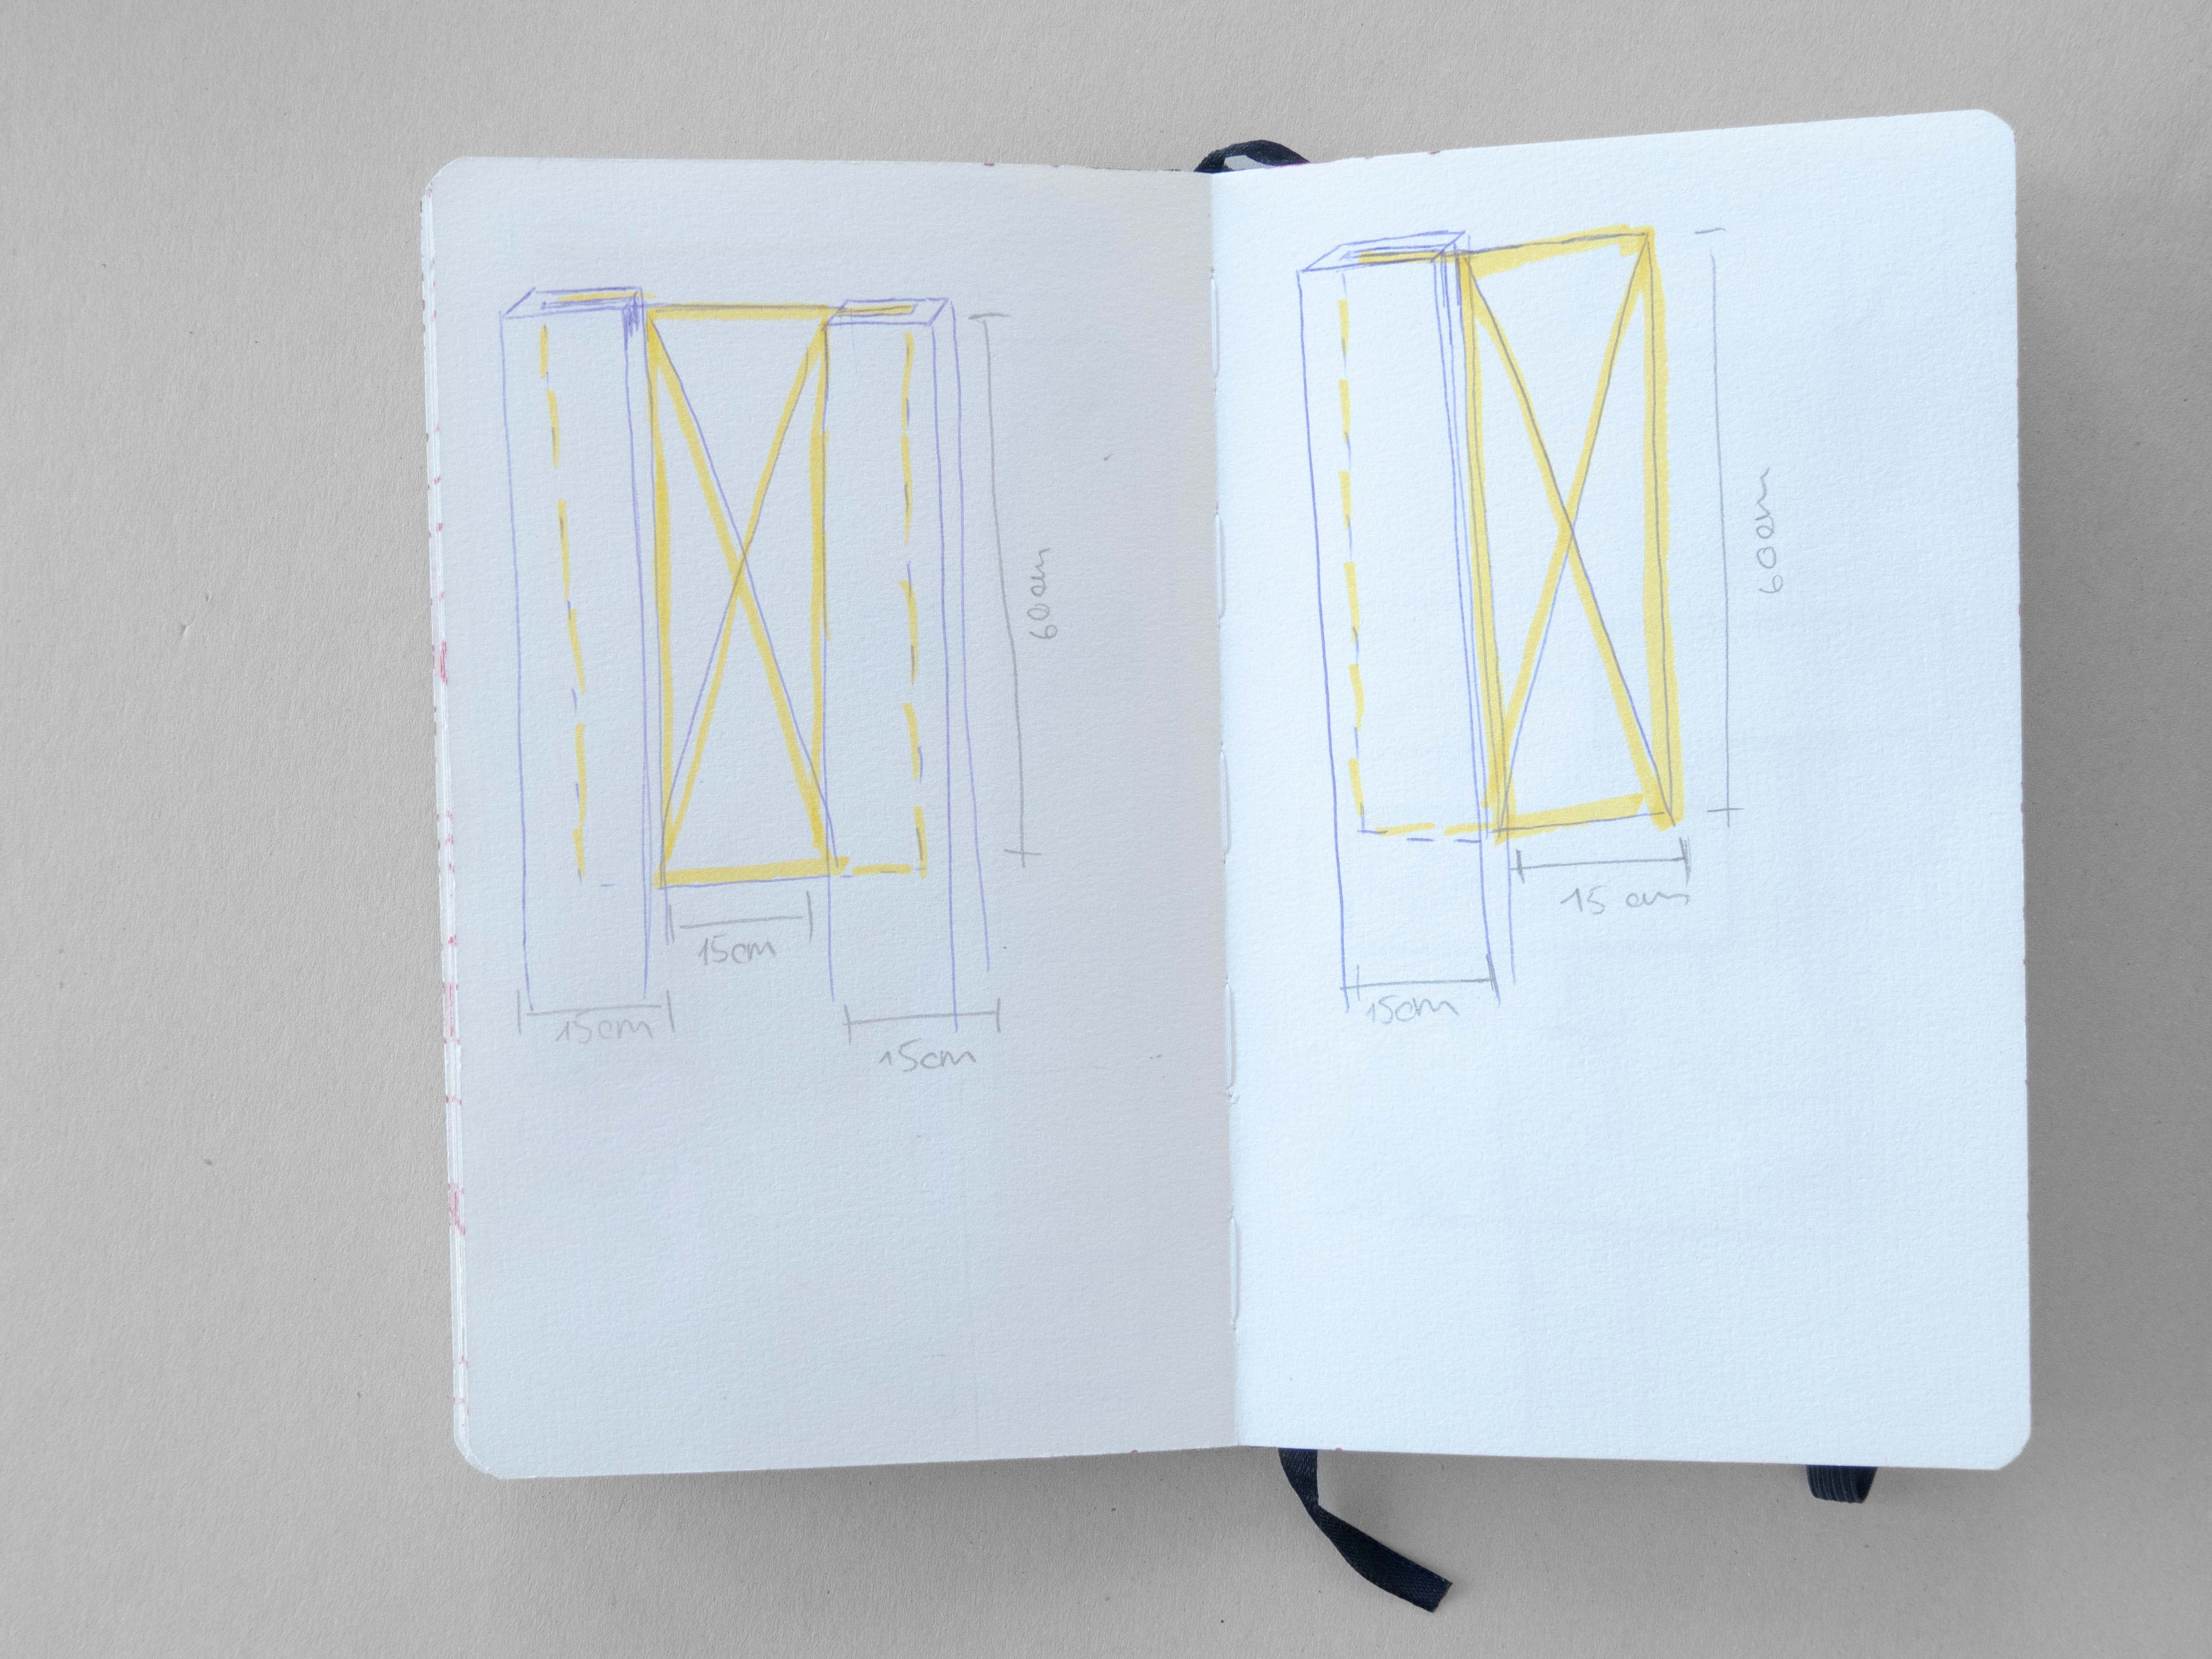 60cm
15cm
15cm
15cm
60cm
15 cm
15cm